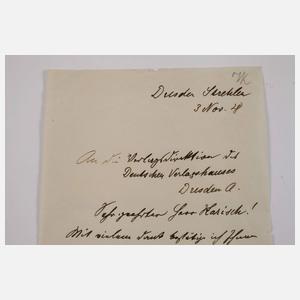 Dresden Strehlen
3 Nov. 28
An die Verlagsdirektion des
Deutschen Verlagshauses
Dresden A.
Sehr geehrter Herr Harisch!
Mit vielem Dank bestätige ich Ihnen